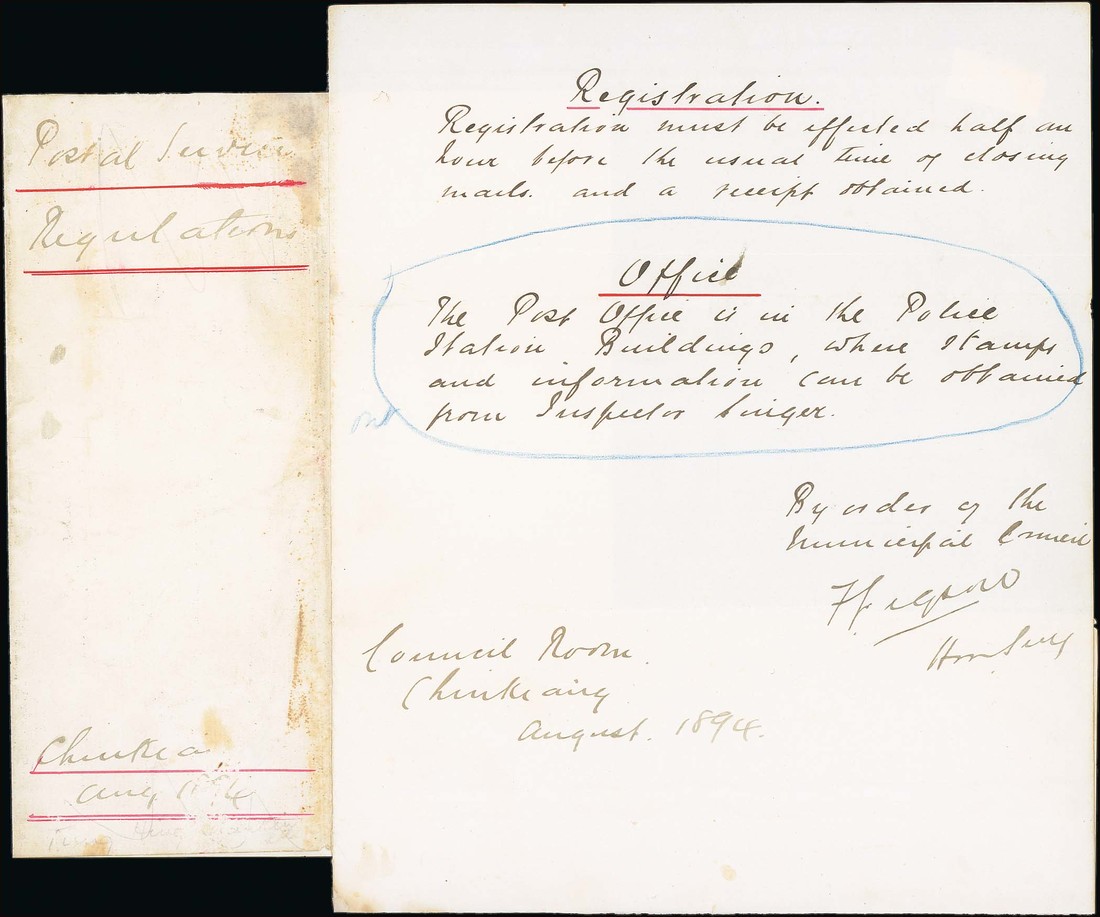 Postal Service
Regulations
Chinkea
Aug
Registration.
Registration must be effected half an
hour before the usual time of closing
mails. and a receipt obtained.
Office
The Post Office is in the Police
Station Buildings, where stamps
and information can be obtained
from Inspector Singer.
By order of the
Municipal Council
Council Room.
Chinkeang
August. 1894.